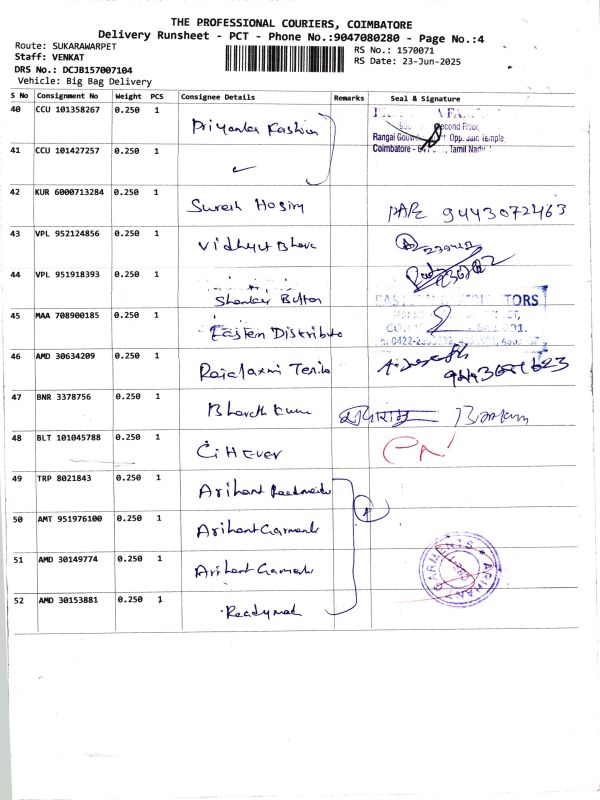 THE PROFESSIONAL COURIERS, COIMBATORE
Delivery Runsheet - PCT - Phone No.:9047080280 - Page No.:4
Route: SUKARAWARPET
RS No.: 1570071
Staff: VENKAT
RS Date: 23-Jun-2025
DRS No.: DCJB157007104
Vehicle: Big Bag Delivery
S No Consignment No Weight PCS Consignee Details Remarks Seal & Signature
40 CCU 101358267 0.250 1 Priyanka Fashion
Second Floor,
Opp. Jain Temple,
Coimbatore - Tamil Nadu
41 CCU 101427257 0.250 1
42 KUR 6000713284 0.250 1 Suresh Hosiry 9443072463
43 VPL 952124856 0.250 1 Vidhyut
44 VPL 951918393 0.250 1 Shankar Button
45 MAA 708900185 0.250 1 Eastern Distributo
TORS
46 AMD 30634209 0.250 1 Rajalaxmi
47 BNR 3378756 0.250 1 Bharath
48 BLT 101045788 0.250 1
49 TRP 8021843 0.250 1 Arihant Readmade
50 AMT 951976100 0.250 1 Arihant Garments
51 AMD 30149774 0.250 1 Arihant
ARIHANT GARMENTS
52 AMD 30153881 0.250 1 Readymad